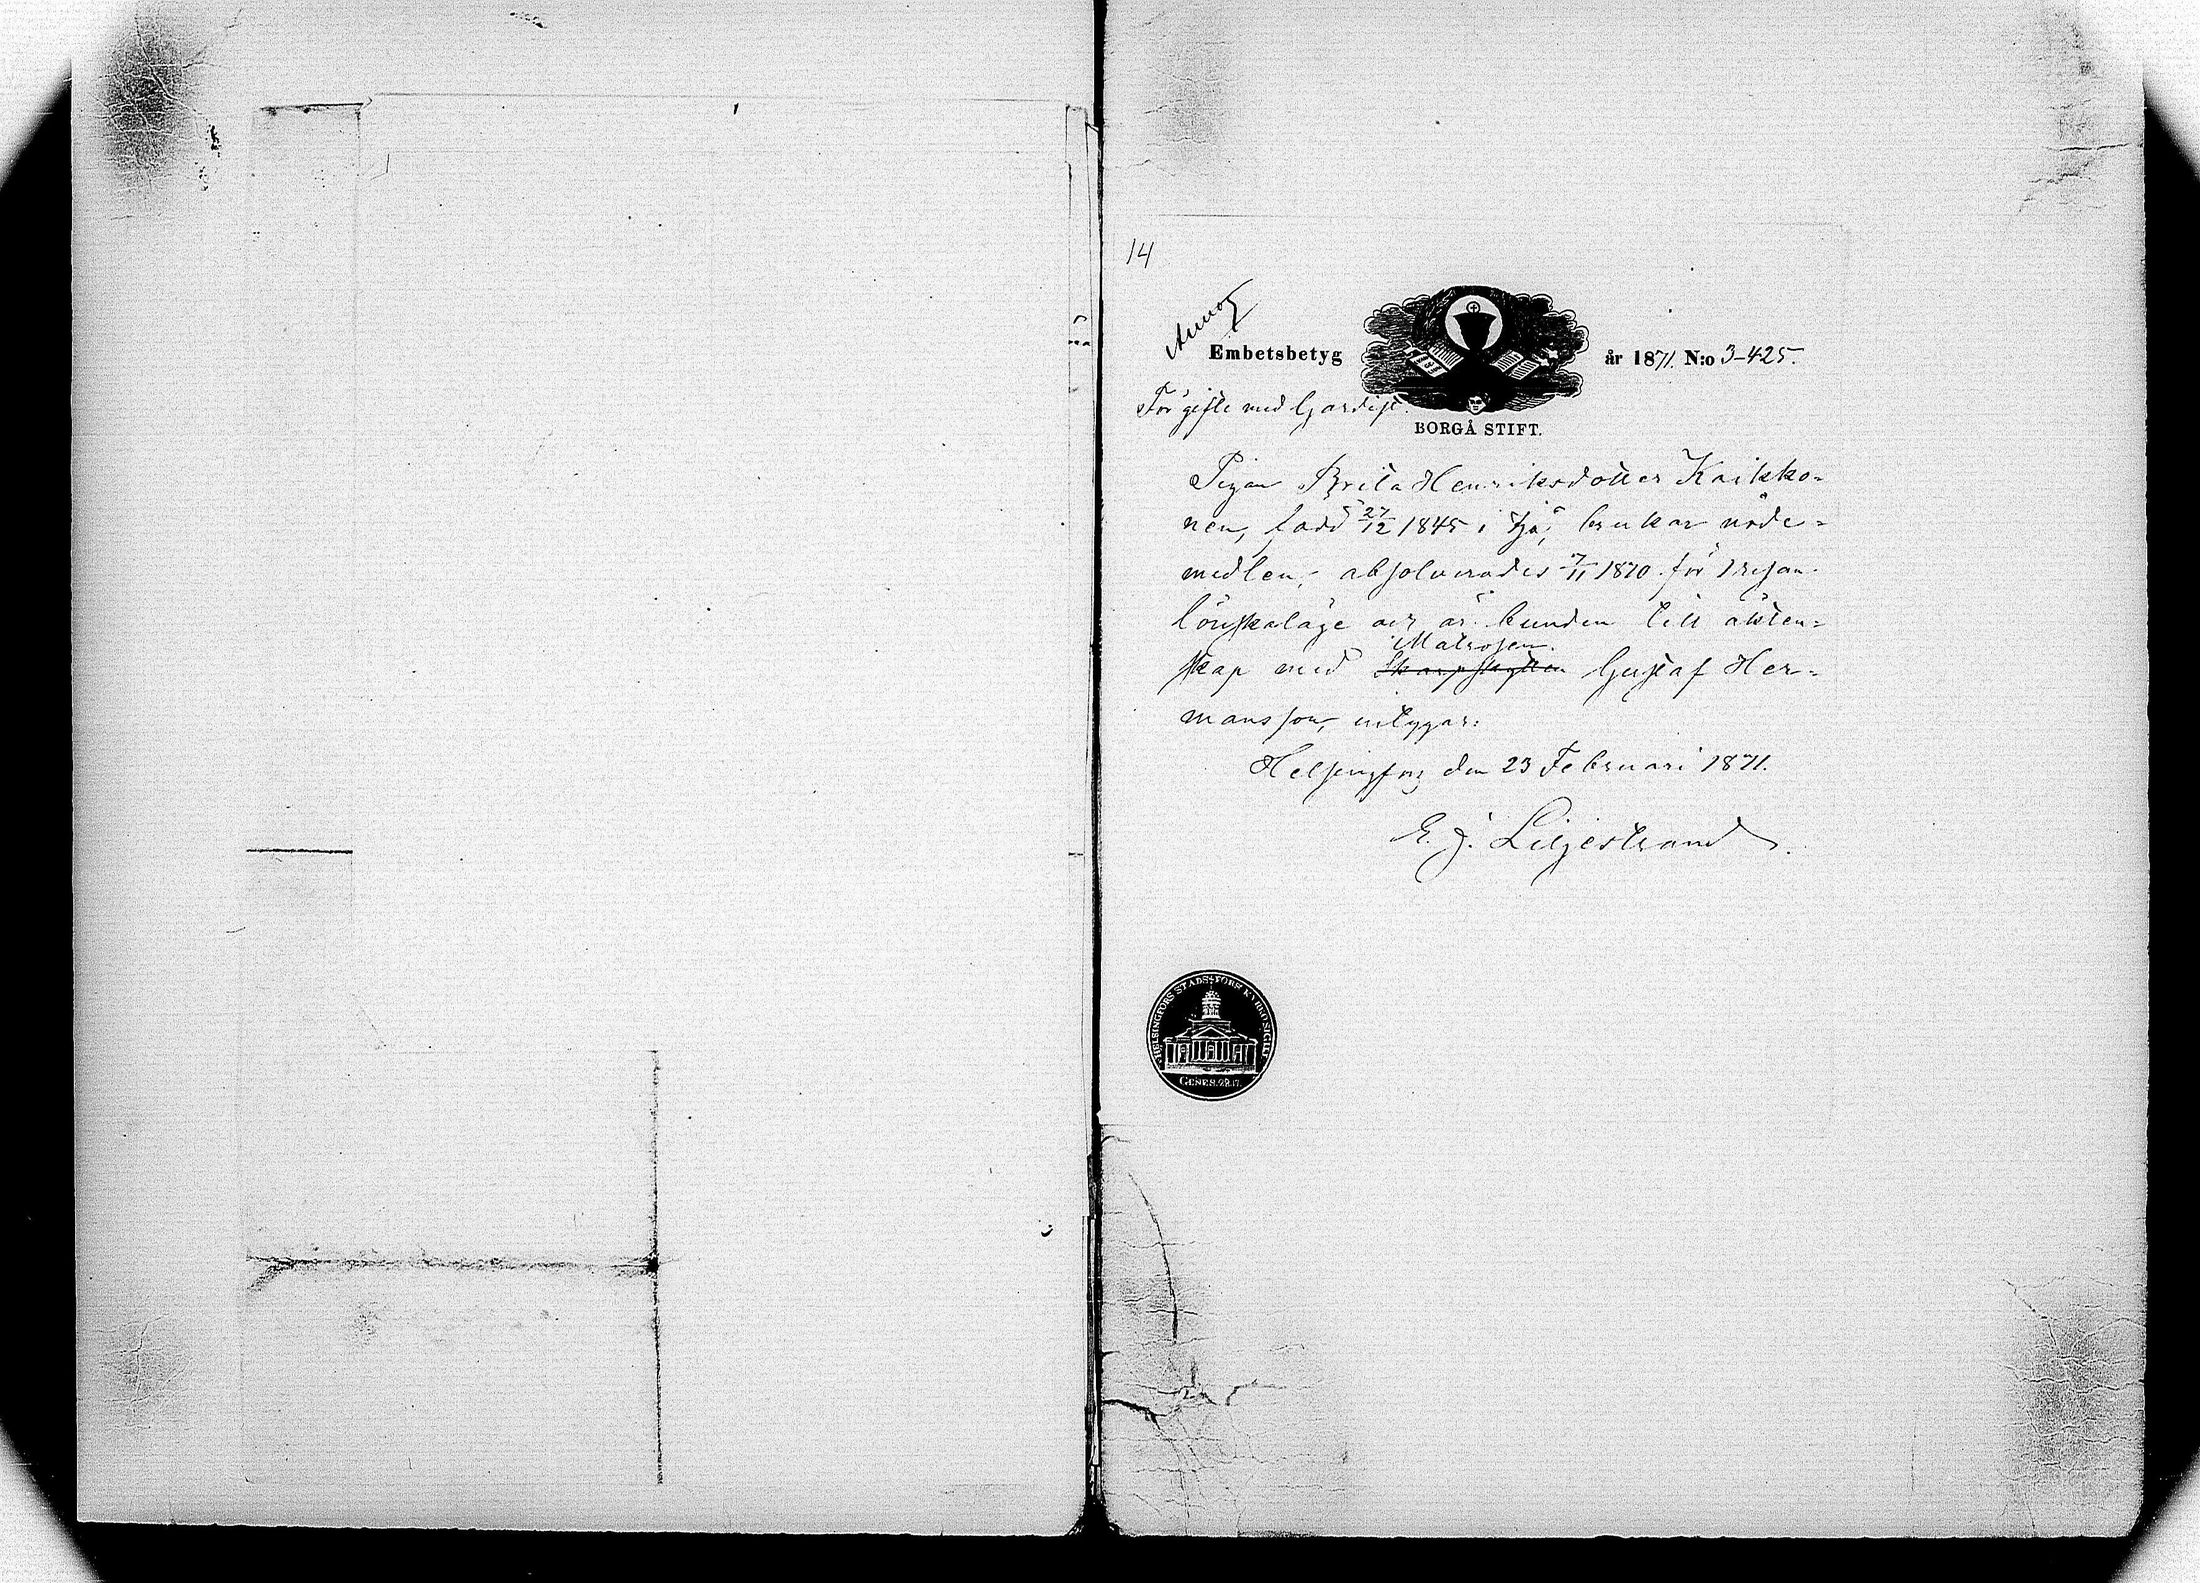 14
Annot
Embetsbetyg år 1871. N:o 3-425.
För gifte med Gardist.
BORGÅ STIFT.
Pigan Brita Henriksdotter Kaikko=
nen, född 27/12 1845 i brukar nåde=
medlen, absolverades 7/11 1870 för
lönskaläge och är bunden till äkten=
Matrosen.
skap med Skarpskytten Gustaf Her=
mansson, intygar:
Helsingfors den 23 Februari 1871.
E. J. Liljestrand.
HELSINGFORS STADS FÖRS. KYRKO SIGILL
GENES. 28. 17.